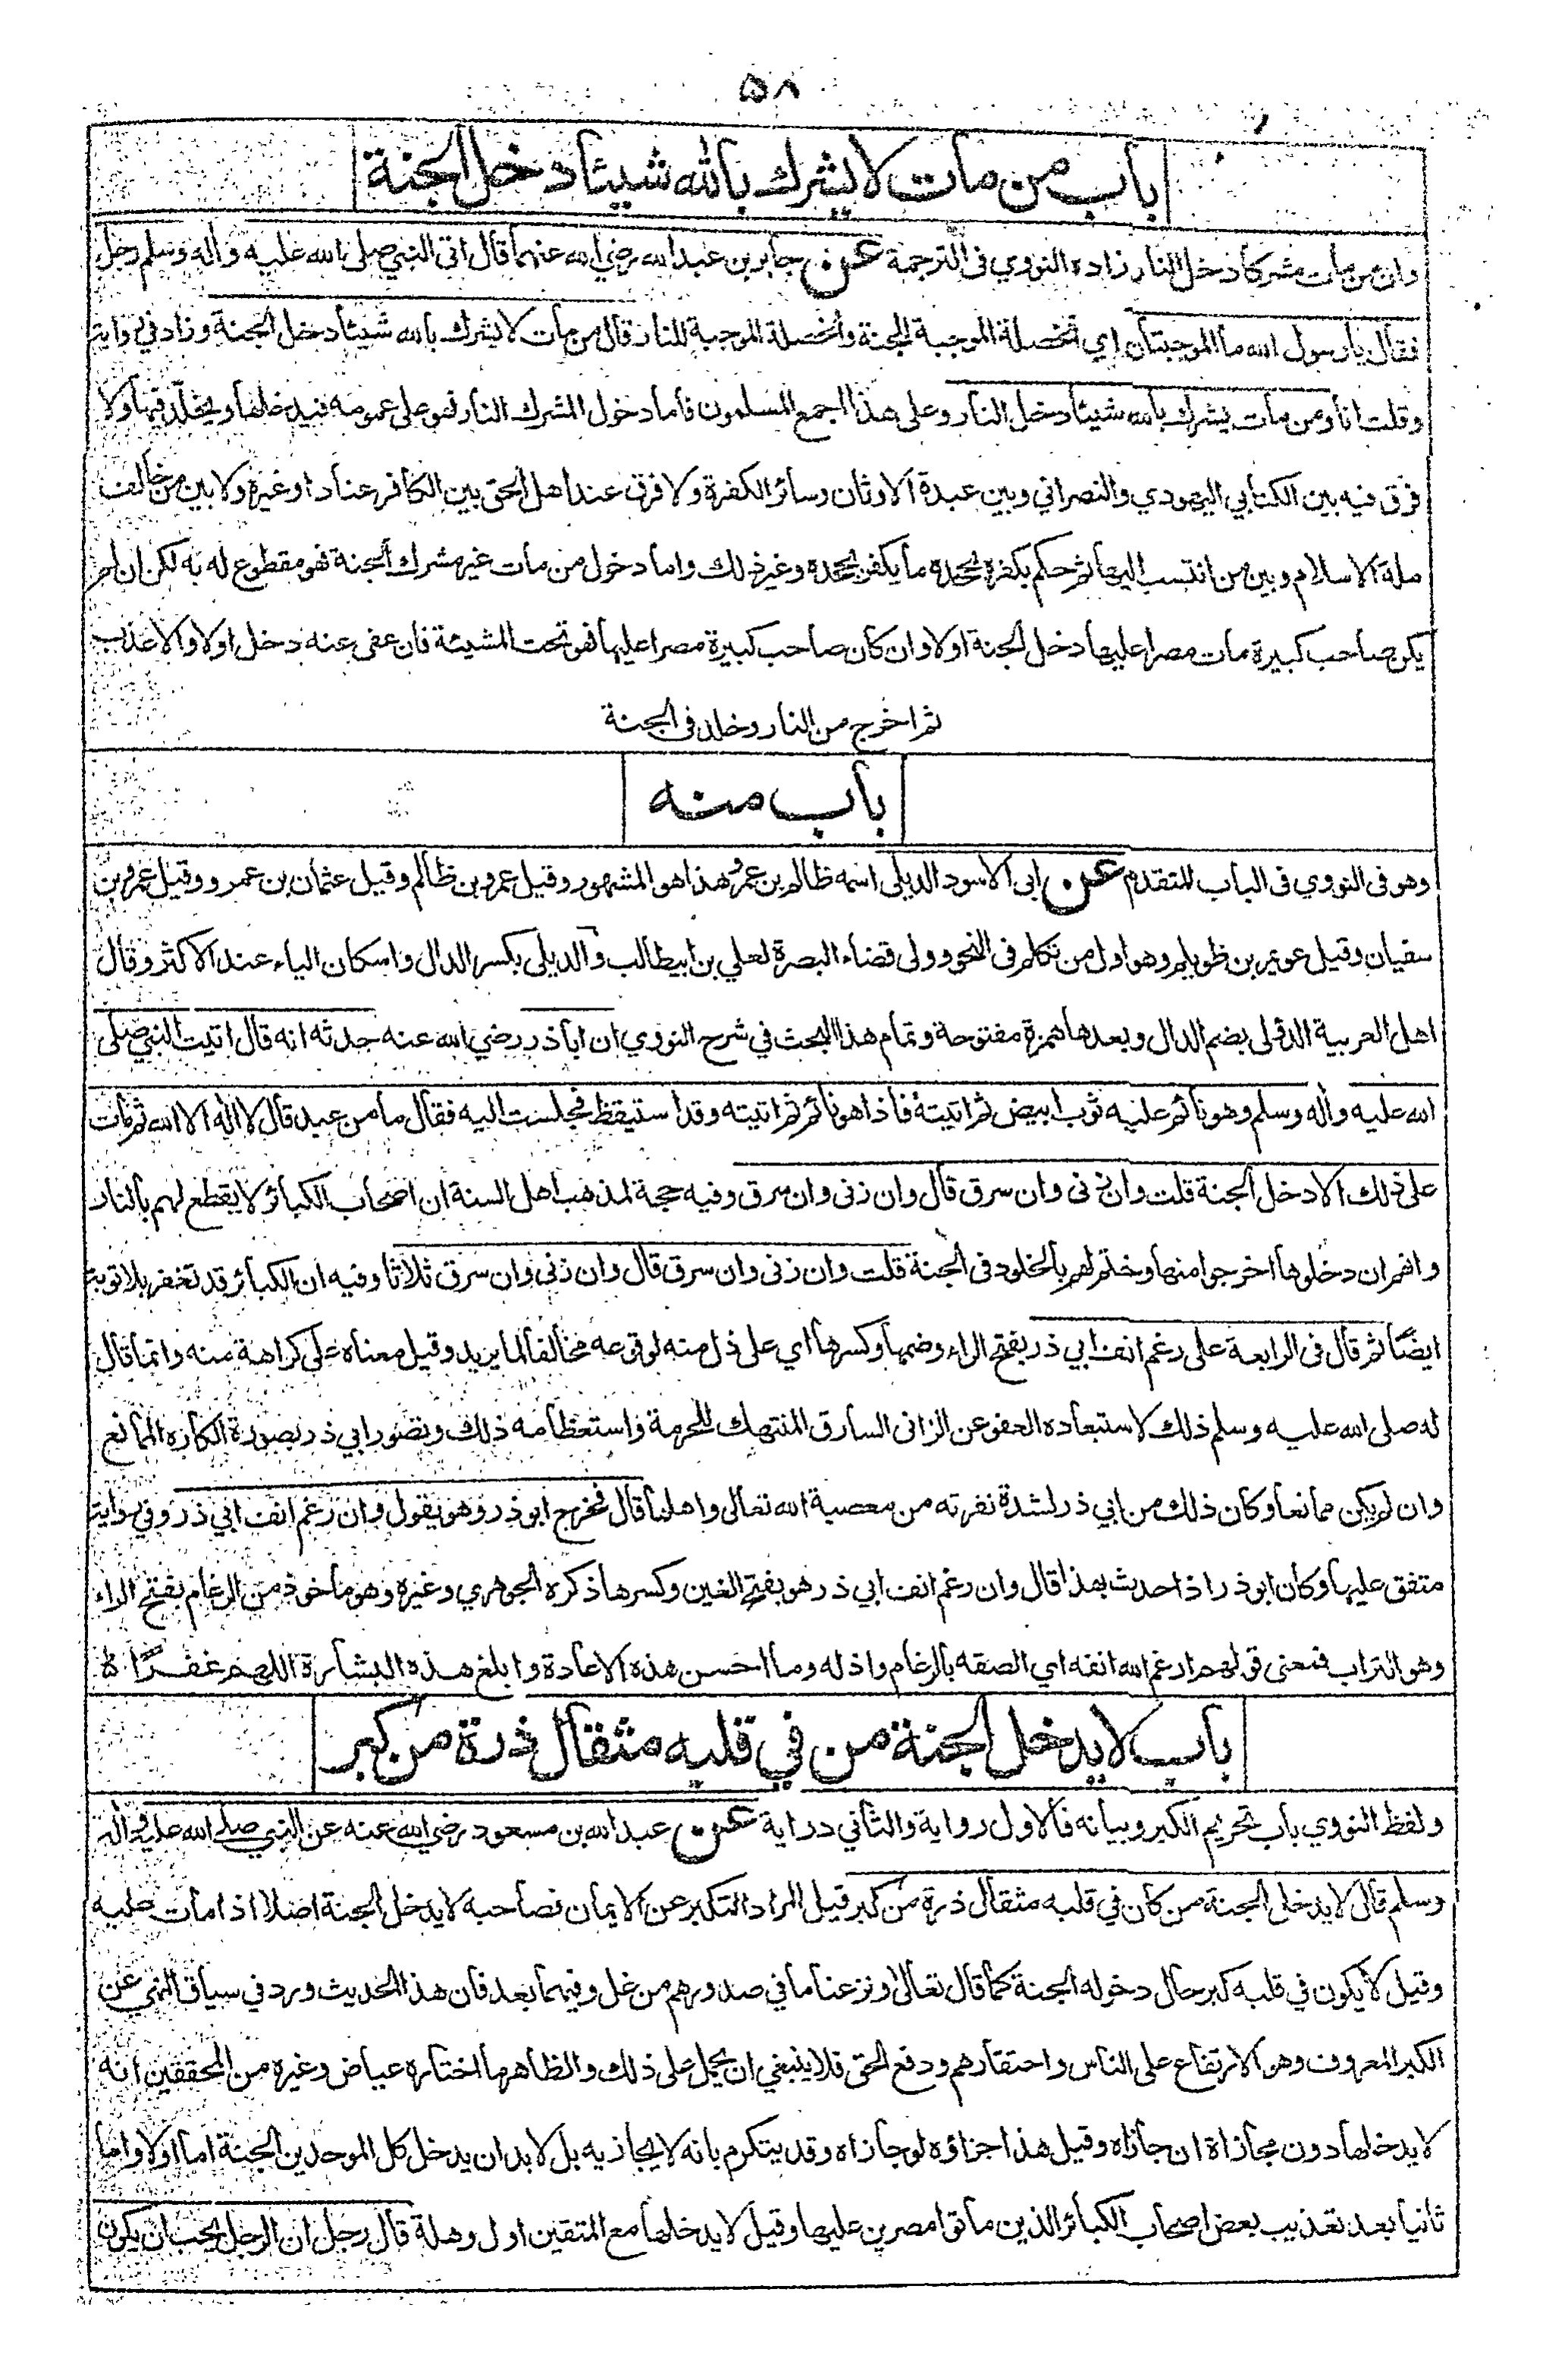 ٥٨
باب من مات لا يشرك بالله شيئا دخل الجنة
وان من مات مشركا دخل النار زاده النووي في الترجمة عن جابر بن عبد الله رضي الله عنهما قال اتى النبي صلى الله عليه وآله وسلم رجل
فقال يا رسول الله ما الموجبتان اي الخصلة الموجبة للجنة والخصلة الموجبة للنار قال من مات لا يشرك بالله شيئا دخل الجنة وزاد في رواية
وقلت انا ومن مات يشرك بالله شيئا دخل النار وعلى هذا اجمع المسلمون فاما دخول المشرك النار فهو على عمومه فيدخلها ويخلد فيها ولا
فرق فيه بين الكتابي اليهودي والنصراني وبين عبدة الاوثان وسائر الكفرة ولا فرق عند اهل الحق بين الكافر عنادا وغيره ولا بين من خالف
ملة الاسلام وبين من انتسب اليها ثم حكم بكفره لجحده ما يكفر بجحده وغير ذلك واما دخول من مات غير مشرك الجنة فهو مقطوع له به لكن ان لم
يكن صاحب كبيرة مات مصرا عليها دخل الجنة اولا وان كان صاحب كبيرة مصرا عليها فهو تحت المشيئة فان عفي عنه دخل اولا والا عذب
ثم اخرج من النار وخلد في الجنة
باب منه
وهو في النووي في الباب المتقدم عن ابي الاسود الديلي اسمه ظالم بن عمرو هذا هو المشهور وقيل عمرو بن ظالم وقيل عثمان بن عمرو وقيل عمرو بن
سفيان وقيل عويمر بن ظويلم وهو اول من تكلم في النحو وولى قضاء البصرة لعلي بن ابيطالب والديلي بكسر الدال واسكان الياء عند الاكثر وقال
اهل العربية الدؤلى بضم الدال وبعدها همزة مفتوحة وتمام هذا البحث في شرح النووي ان اباذر رضي الله عنه حدثه انه قال اتيت النبي صلى
الله عليه وآله وسلم وهو نائم عليه ثوب ابيض ثم اتيته فاذا هو نائم ثم اتيته وقد استيقظ فجلست اليه فقال ما من عبد قال لا اله الا الله ثم مات
على ذلك الا دخل الجنة قلت وان زنى وان سرق قال وان زنى وان سرق وفيه حجة لمذهب اهل السنة ان اصحاب الكبائر لا يقطع لهم بالنار
وانهم ان دخلوها اخرجوا منها وختم لهم بالخلود في الجنة قلت وان زنى وان سرق قال وان زنى وان سرق ثلاثا وفيه ان الكبائر قد تغفر بلا توبة
ايضًا ثم قال في الرابعة على رغم انف ابي ذر بفتح الراء وضمها وكسرها اي على ذل منه لوقوعه مخالفا لما يريد وقيل معناه على كراهة منه وانما قال
له صلى الله عليه وسلم ذلك لاستبعاده العفو عن الزاني السارق المنتهك للحرمة واستعظامه ذلك وتصور ابي ذر بصورة الكاره الممانع
وان لم يكن ممانعا وكان ذلك من ابي ذر لشدة نفرته من معصية الله تعالى واهلها قال فخرج ابو ذر وهو يقول وان رغم انف ابي ذر وفي رواية
متفق عليها وكان ابو ذر اذا حدث بهذا قال وان رغم انف ابي ذر هو بفتح الغين وكسرها ذكره الجوهري وغيره وهو ماخوذ من الرغام بفتح الراء
وهو التراب فمعنى قولهم ارغم الله انفه اي الصقه بالرغام واذله وما احسن هذه الاعادة وابلغ هذه البشارة اللهم غفرًا
باب لا يدخل الجنة من في قلبه مثقال ذرة من كبر
ولفظ النووي باب تحريم الكبر وبيانه فالاول رواية والثاني دراية عن عبد الله بن مسعود رضي الله عنه عن النبي صلى الله عليه وآله
وسلم قال لا يدخل الجنة من كان في قلبه مثقال ذرة من كبر قيل المراد التكبر عن الايمان فصاحبه لا يدخل الجنة اصلا اذا مات عليه
وقيل لا يكون في قلبه كبر حال دخوله الجنة كما قال تعالى ونزعنا ما في صدورهم من غل وفيهما بعد فان هذا الحديث ورد في سياق النهي عن
الكبر المعروف وهو الارتفاع على الناس واحتقارهم ودفع الحق فلا ينبغي ان يحمل على ذلك والظاهر ما اختاره عياض وغيره من المحققين انه
لا يدخلها دون مجازاة ان جازاه وقيل هذا جزاؤه لو جازاه وقد يتكرم بانه لا يجازيه بل لا بد ان يدخل كل الموحدين الجنة اما اولا واما
ثانيا بعد تعذيب بعض اصحاب الكبائر الذين ماتوا مصرين عليها وقيل لا يدخلها مع المتقين اول وهلة قال رجل ان الرجل يحب ان يكون